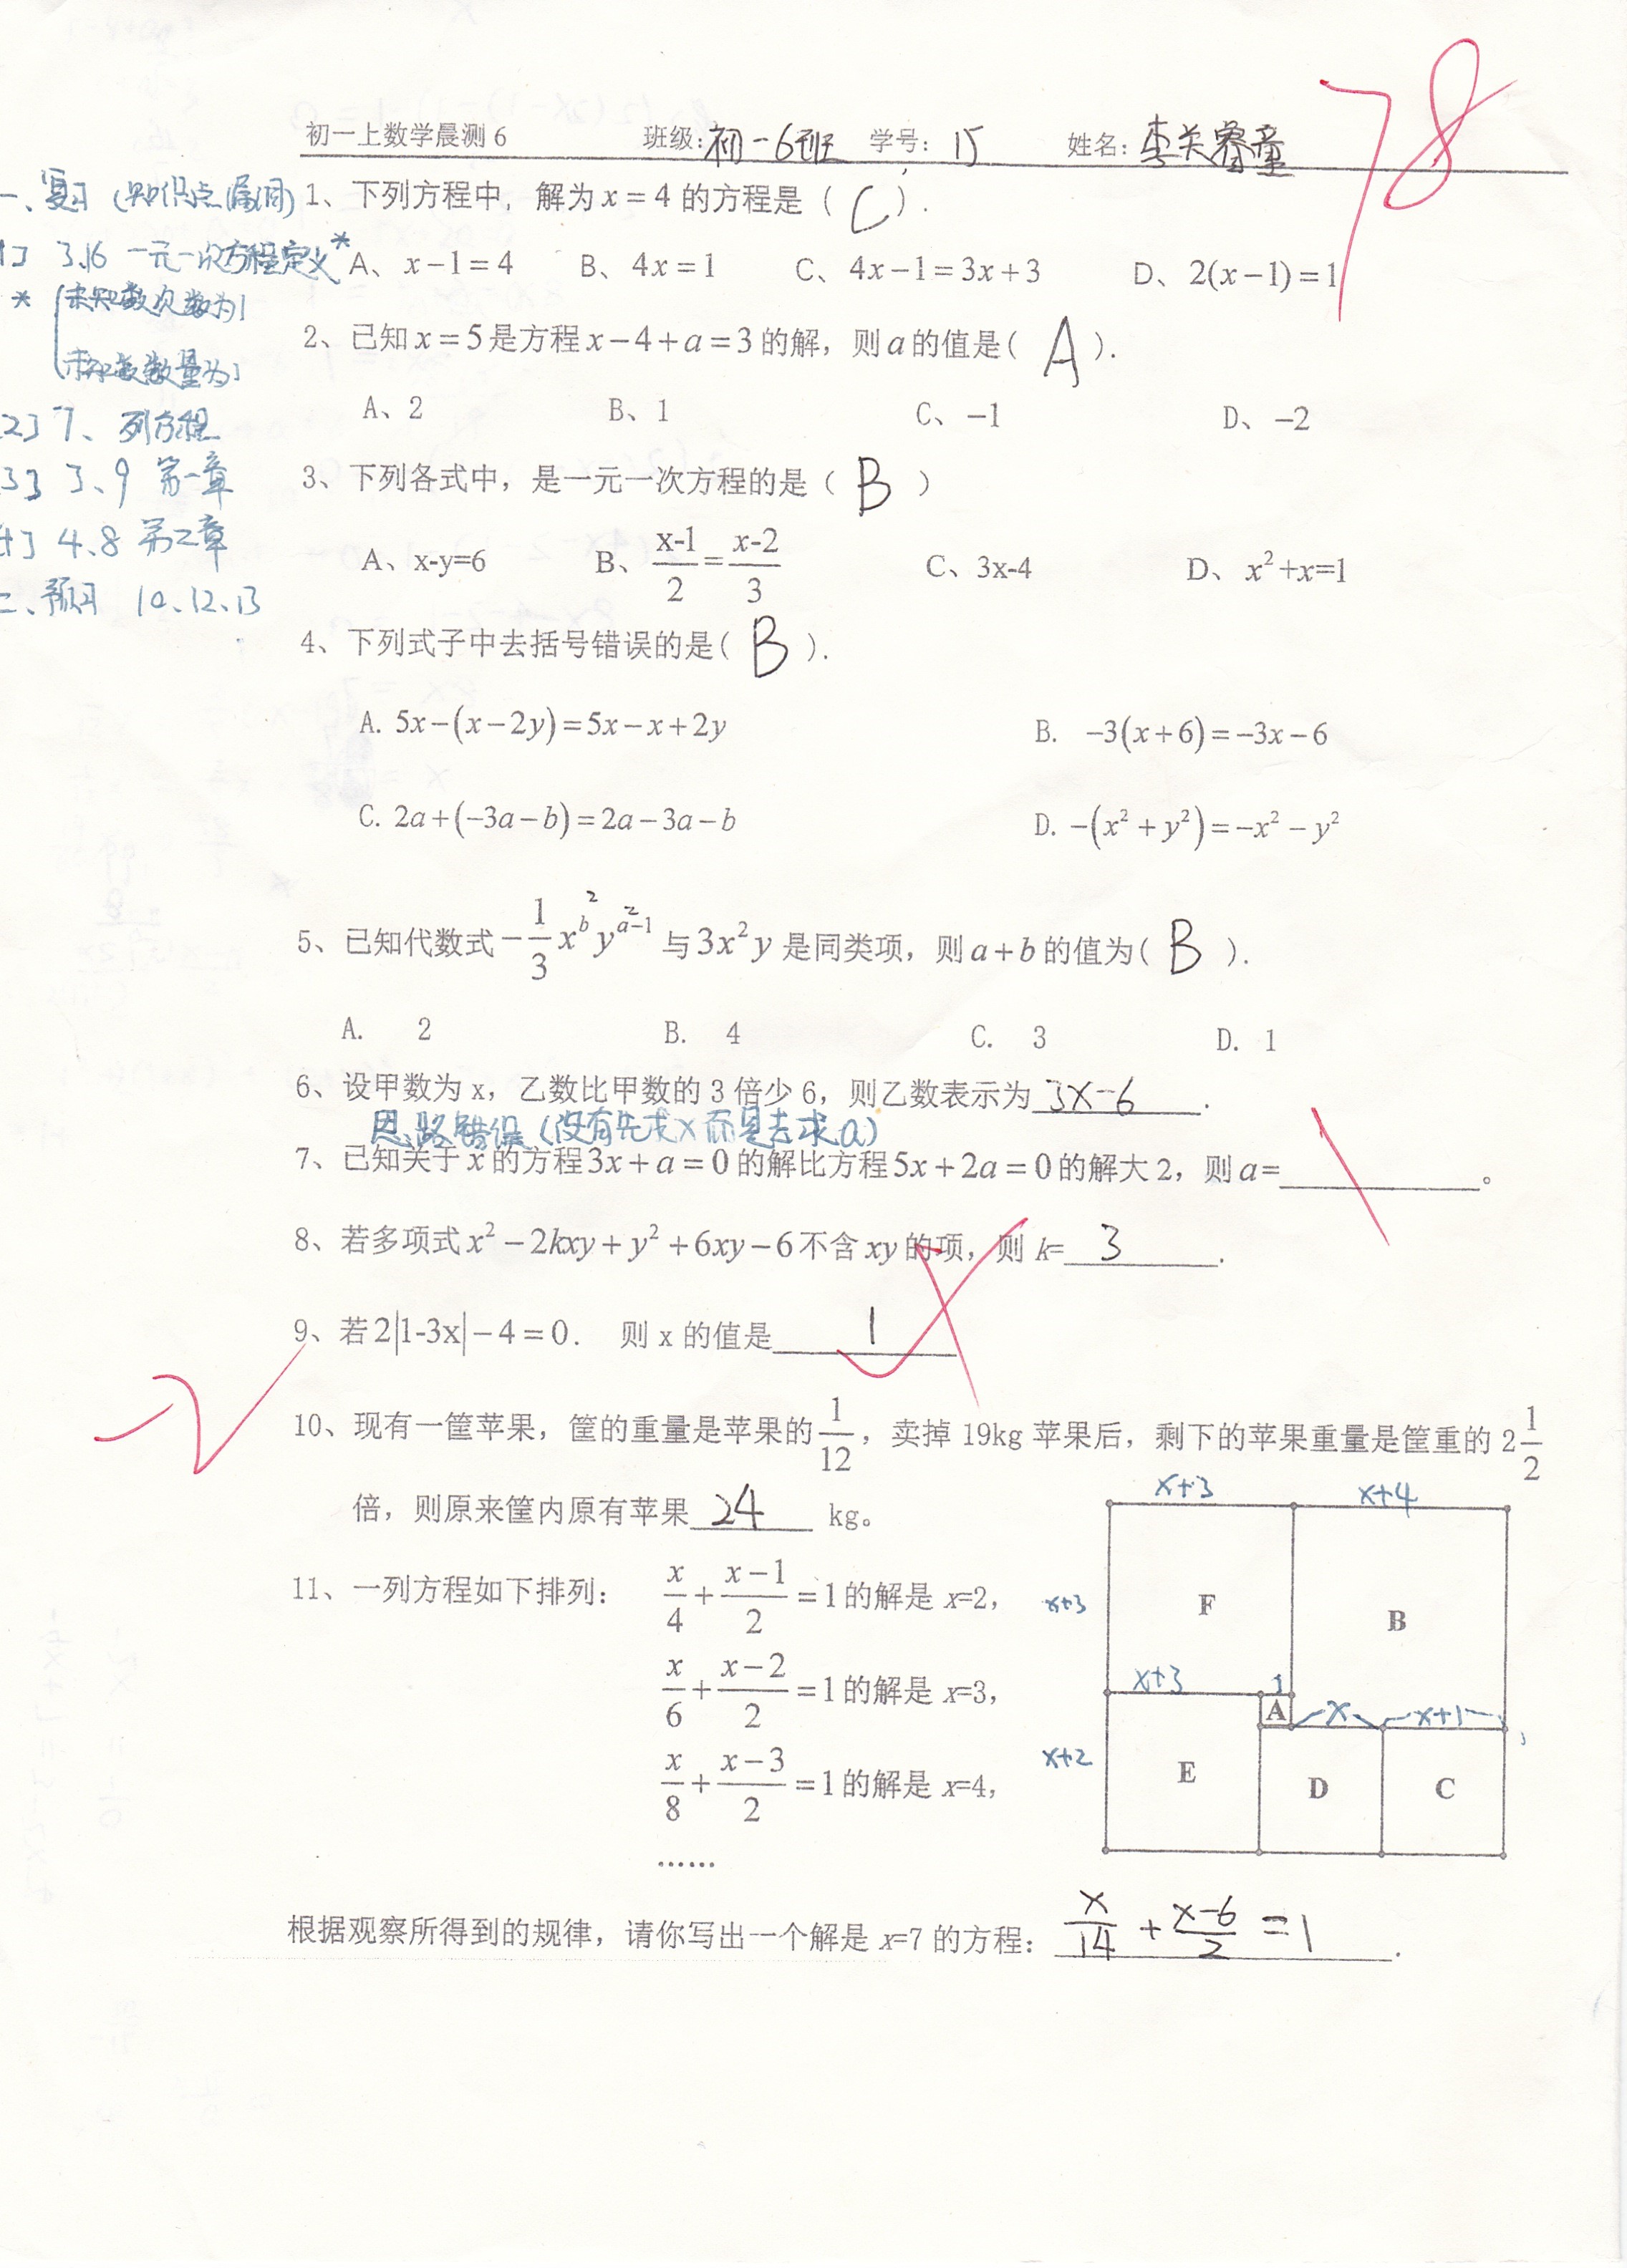 78
初一上数学晨测6 班级：初一6班 学号：15 姓名：李关睿童
一、复习（知识点漏洞）
1、下列方程中，解为x=4的方程是（ C ）.
[1] 3、16 一元一次方程定义*
A、x−1=4 B、4x=1 C、4x−1=3x+3 D、2(x−1)=1
* { 未知数次数为1
未知数数量为1
2、已知x=5是方程x−4+a=3的解，则a的值是( A ).
[2] 7、列方程
A、2 B、1 C、−1 D、−2
[3] 3、9 第一章
3、下列各式中，是一元一次方程的是（ B ）
[4] 4、8 第二章
A、x-y=6 B、(x-1)/2=(x-2)/3 C、3x-4 D、x²+x=1
二、预习 10、12、13
4、下列式子中去括号错误的是( B ).
A. 5x−(x−2y)=5x−x+2y B. −3(x+6)=−3x−6
C. 2a+(−3a−b)=2a−3a−b D. −(x²+y²)=−x²−y²
2 2
5、已知代数式−1/3 x^b y^(a−1)与3x²y是同类项，则a+b的值为( B ).
A. 2 B. 4 C. 3 D. 1
6、设甲数为x，乙数比甲数的3倍少6，则乙数表示为3x-6.
思路错误（没有先求x而是去求a）
7、已知关于x的方程3x+a=0的解比方程5x+2a=0的解大2，则a=______。
8、若多项式x²−2kxy+y²+6xy−6不含xy的项，则k=3.
9、若2|1-3x|−4=0. 则x的值是1
10、现有一筐苹果，筐的重量是苹果的1/12，卖掉19kg苹果后，剩下的苹果重量是筐重的2 1/2
倍，则原来筐内原有苹果24 kg。
11、一列方程如下排列： x/4+(x−1)/2=1的解是x=2，
x/6+(x−2)/2=1的解是x=3，
x/8+(x−3)/2=1的解是x=4，
……
x+3 x+4
x+3 F B
x+3 1
A x x+1
x+2 E D C
根据观察所得到的规律，请你写出一个解是x=7的方程：x/14+(x-6)/2=1.